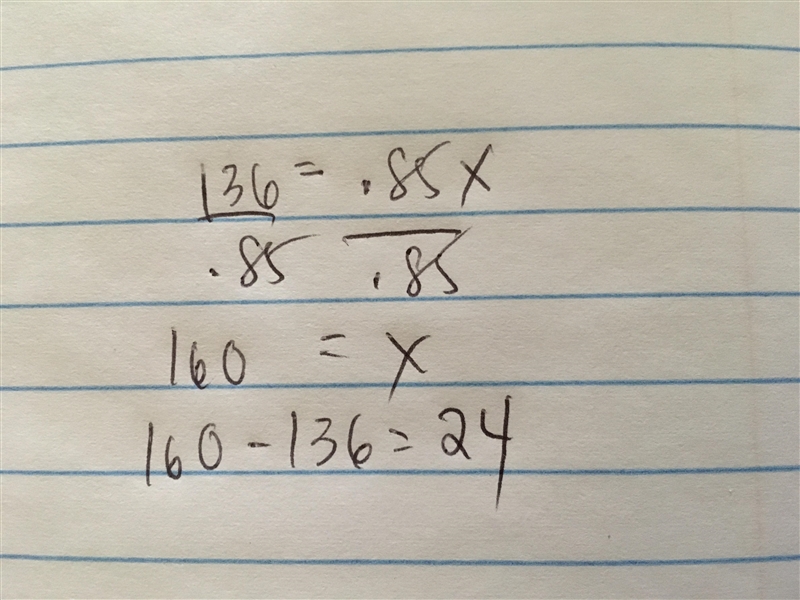 136 = .85x
.85 .85
160 = x
160 - 136 = 24